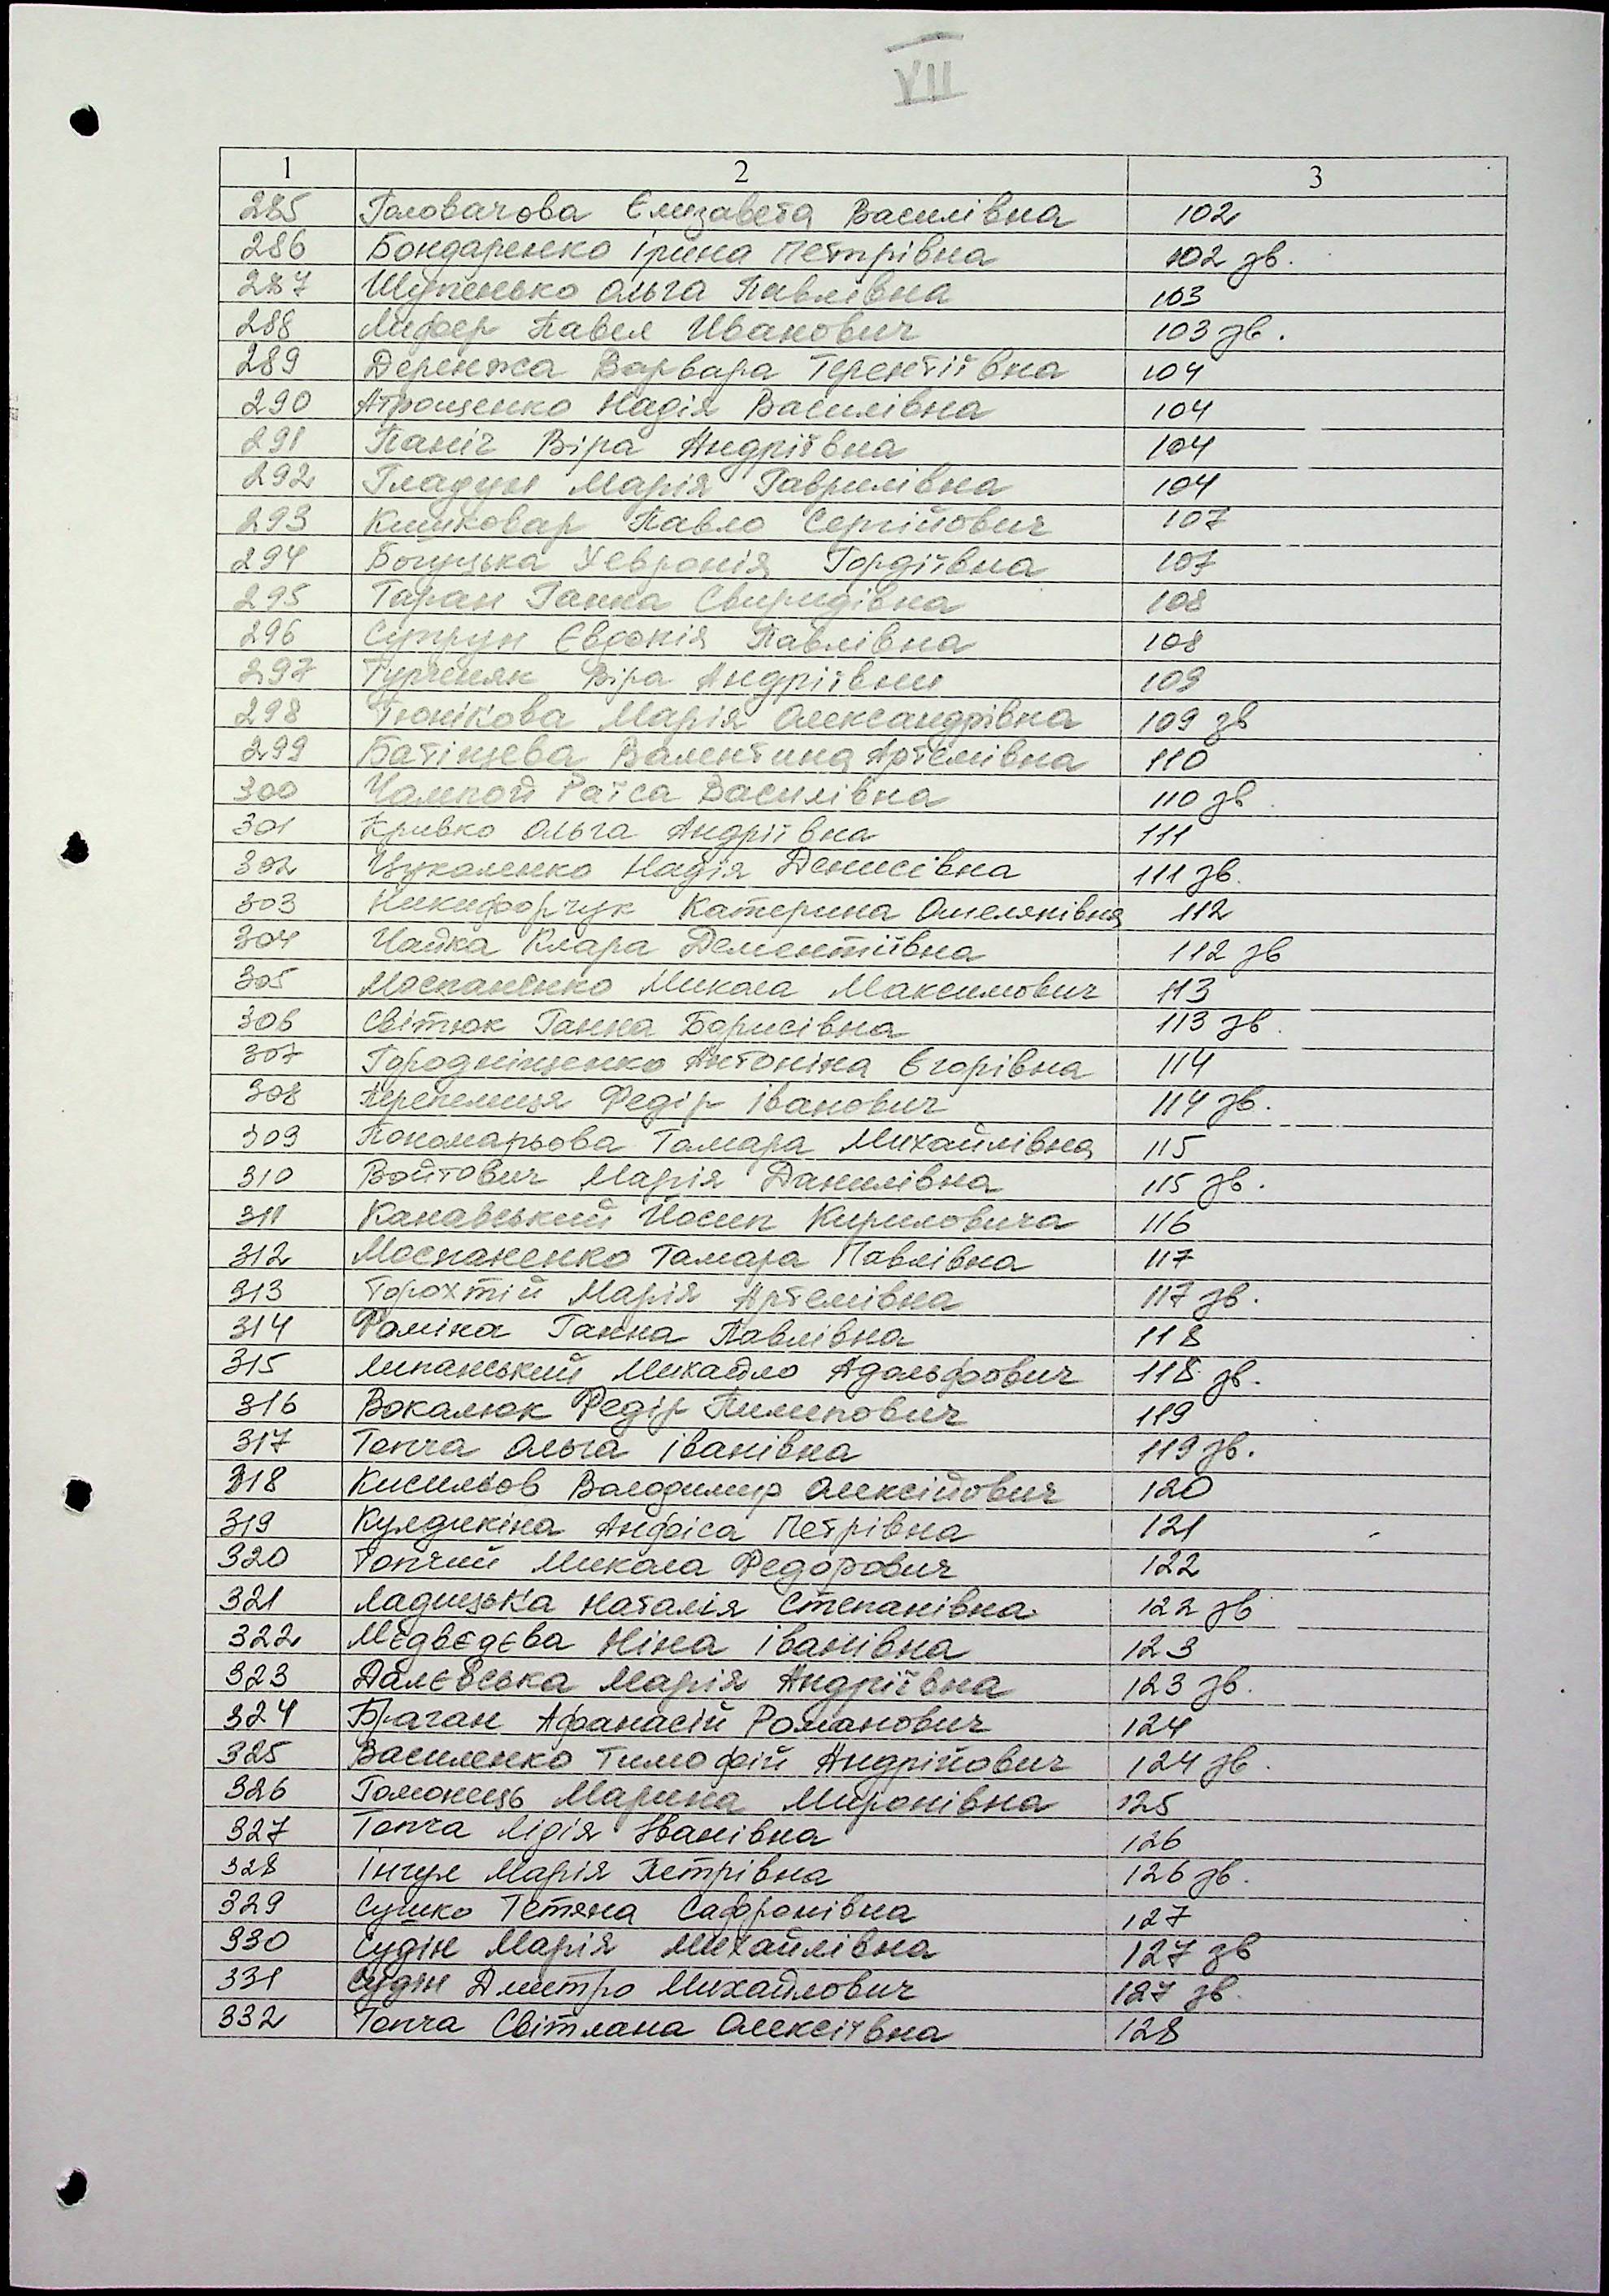 VII
1 2 3
285 Головачова Єлизавета Василівна 102
286 Бондаренко Ірина Петрівна 102 зв.
287 Шупенько Ольга Павлівна 103
288 Лифер Павел Иванович 103 зв.
289 Деренжа Варвара Терентіївна 104
290 Атрощенко Надія Василівна 104
291 Паніч Віра Андріївна 104
292 Гладун Марія Гаврилівна 104
293 Кишковар Павло Сергійович 107
294 Богуцька Хевронія Гордіївна 107
295 Таран Ганна Свиридівна 108
296 Супрун Євдокія Павлівна 108
297 Гурченяк Віра Андріївни 109
298 Тюнікова Марія Олександрівна 109 зв
299 Батіщева Валентина Артемівна 110
300 Чалпой Раїса Василівна 110 зв.
301 Кривко Ольга Андріївна 111
302 Цукаленко Надія Денисівна 111 зв.
303 Никифорчук Катерина Омелянівна 112
304 Чайка Клара Дементіївна 112 зв
305 Моспаненко Микола Максимович 113
306 Світюк Ганна Борисівна 113 зв.
307 Городніщенко Антоніна Єгорівна 114
308 Перепелиця Федір Іванович 114 зв.
309 Пономарьова Тамара Михайлівна 115
310 Войтович Марія Данилівна 115 зв.
311 Канавський Йосип Кириловича 116
312 Моспаненко Тамара Павлівна 117
313 Торохтій Марія Артемівна 117 зв.
314 Фоміна Ганна Павлівна 118
315 Липанський Михайло Адольфович 118 зв.
316 Вокалюк Федір Пилипович 119
317 Топча Ольга Іванівна 119 зв.
318 Кисильов Володимир Олексійович 120
319 Кулдикіна Анфіса Петрівна 121
320 Топчий Микола Федорович 122
321 Ладицька Наталія Степанівна 122 зв
322 Мєдвєдєва Ніна Іванівна 123
323 Далєвська Марія Андріївна 123 зв.
324 Браган Афанасій Романович 124
325 Василенко Тимофій Андрійович 124 зв.
326 Гомонець Марина Миронівна 125
327 Топча Лідія Іванівна 126
328 Інгул Марія Петрівна 126 зв.
329 Сушко Тетяна Сафронівна 127
330 Судін Марія Михайлівна 127 зв
331 Судін Дмитро Михайлович 127 зв.
332 Топча Світлана Олексіївна 128